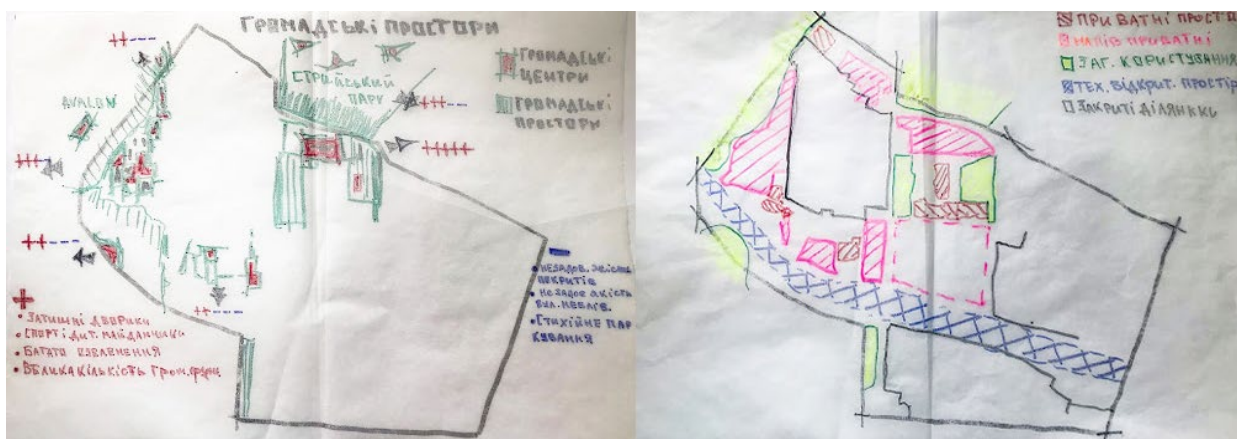 ГРОМАДСЬКІ ПРОСТОРИ
ГРОМАДСЬКІ
ЦЕНТРИ
ГРОМАДСЬКІ
ПРОСТОРИ
СТРИЙСЬКИЙ
ПАРК
AVALON
++---
+++---
+++++
+++---
++---
++---
+
• ЗАТИШНІ ДВОРИКИ
• СПОРТ І ДИТ. МАЙДАНЧИКИ
• БАГАТО ОЗЕЛЕНЕННЯ
• ВЕЛИКА КІЛЬКІСТЬ ГРОМ.
• НЕЗАДОВ. ЯКІСТЬ
ПОКРИТІВ
• НЕЗАДОВ ЯКІСТЬ
• СТИХІЙНЕ ПАР
КУВАННЯ
ПРИВАТНІ ПРОСТО
НАПІВ ПРИВАТНІ
ЗАГ. КОРИСТУВАННЯ
ТЕХ. ВІДКРИТ. ПРОСТІР
ЗАКРИТІ ДІЛЯНКИ